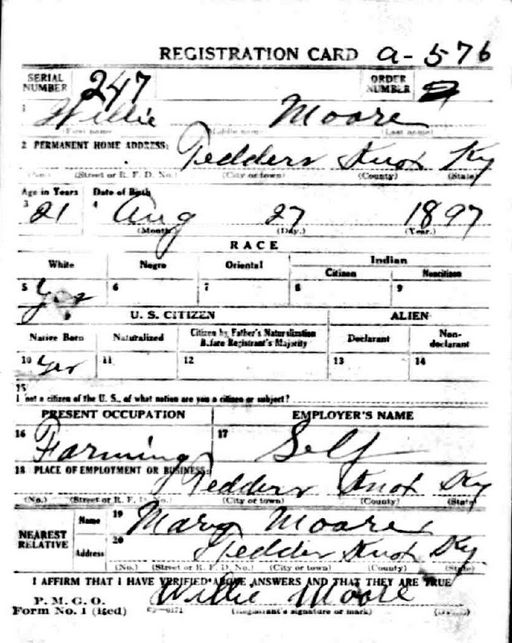 REGISTRATION CARD a-576
SERIAL NUMBER 247 ORDER NUMBER
1 Willie Moore
(First name) (Middle name) (Last name)
2 PERMANENT HOME ADDRESS: Tedders Knox Ky
(No.) (Street or R. F. D. No.) (City or town) (County) (State)
Age in Years Date of Birth
3 21 4 Aug 27 1897
(Month.) (Day.) (Year.)
RACE
White Negro Oriental Indian
Citizen Noncitizen
5 Yes 6 7 8 9
U. S. CITIZEN ALIEN
Native Born Naturalized Citizen by Father's Naturalization Before Registrant's Majority Declarant Non-declarant
10 Yes 11 12 13 14
15
If not a citizen of the U. S., of what nation are you a citizen or subject?
PRESENT OCCUPATION EMPLOYER'S NAME
16 Farming 17 Self
18 PLACE OF EMPLOYMENT OR BUSINESS: Tedders Knox Ky
(No.) (Street or R. F. D. No.) (City or town) (County) (State)
NEAREST RELATIVE Name 19 Mary Moore
Address 20 Tedder Knox Ky
(No.) (Street or R. F. D. No.) (City or town) (County) (State)
I AFFIRM THAT I HAVE VERIFIED ABOVE ANSWERS AND THAT THEY ARE TRUE
P. M. G. O.
Form No. 1 (Red) Willie Moore
(Registrant's signature or mark)